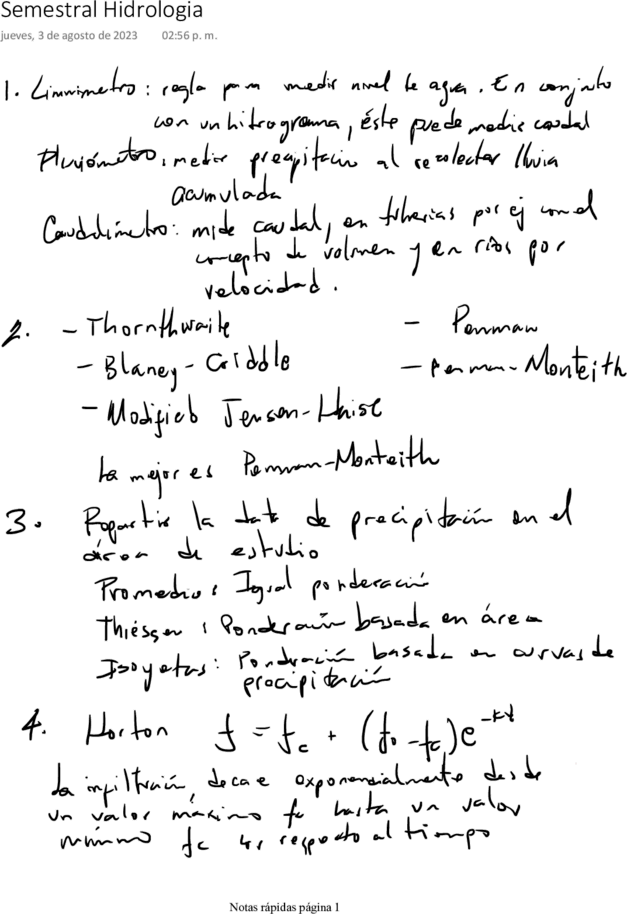 Semestral Hidrologia
jueves, 3 de agosto de 2023 02:56 p. m.
1. Limnimetro: regla para medir nivel de agua. En conjunto
con un hitrograma, éste puede medir caudal
Pluviómetro: medir precipitación al recolectar lluvia
acumulada
Caudalímetro: mide caudal, en tuberias por ej con el
concepto de volumen y en ríos por
velocidad.
2. - Thornthwaite - Penman
- Blaney-Criddle - Penman-Monteith
- Modified Jensen-Haise
La mejor es Penman-Monteith
3. Repartir la data de precipitación en el
área de estudio
Promedio: Igual ponderación
Thiessen: Ponderación basada en área
Isoyetas: Ponderación basada en curvas de
precipitación
4. Horton f = fc + (f0 - fc)e^-kt
La infiltración decae exponencialmente desde
un valor máximo fo hasta un valor
mínimo fc respecto al tiempo
Notas rápidas página 1